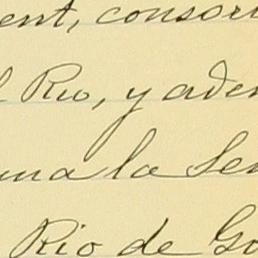 ent, consor
l Rio, y adem
una la Sen
Rio de Go